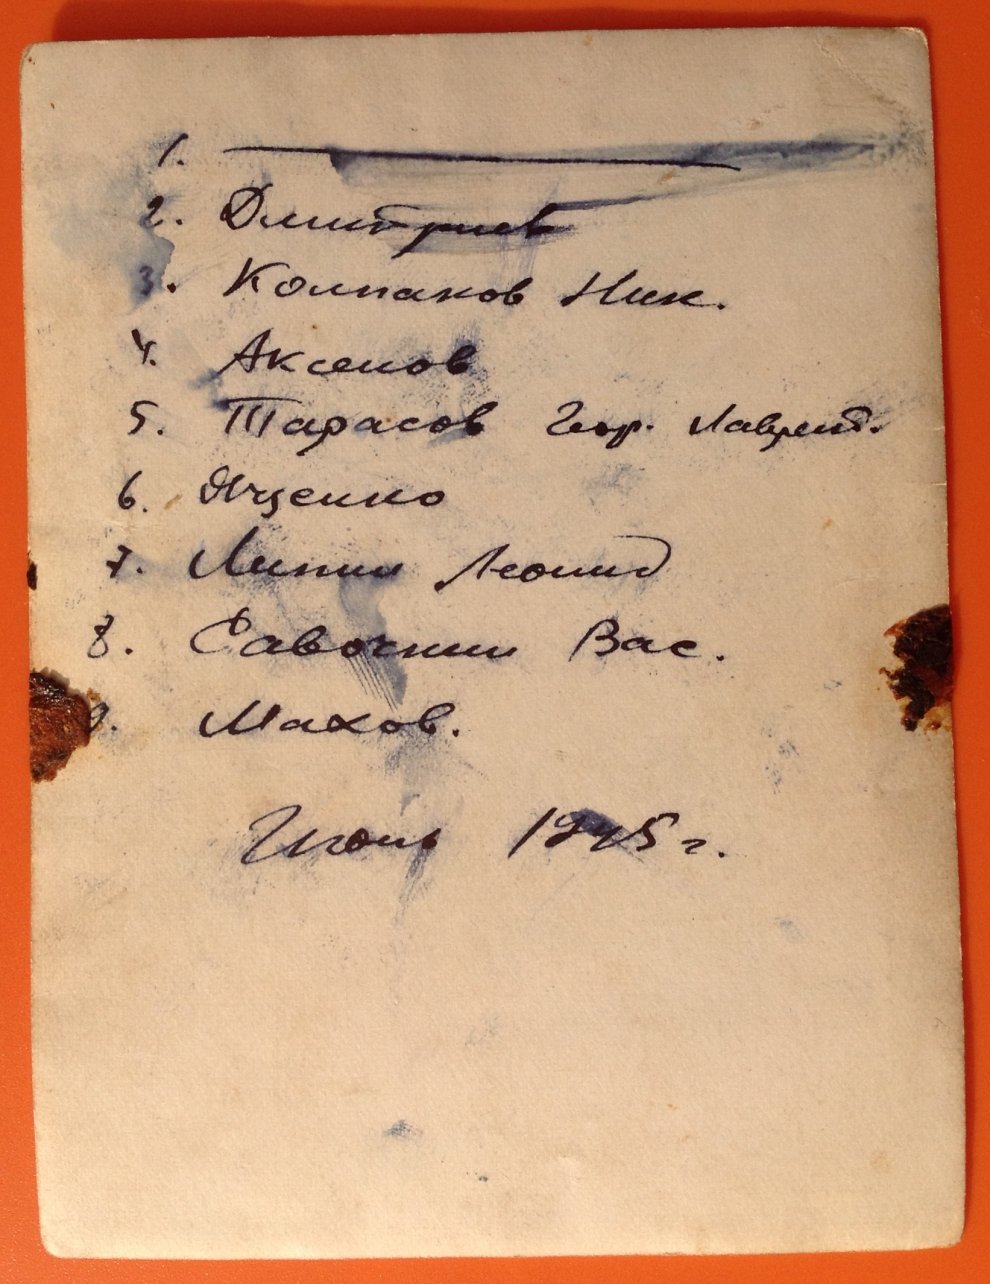 1. ——————
2. Дмитриев
3. Колпаков Ник.
4. Аксенов
5. Тарасов Геор. Лаврент.
6. Яценко
7. Липин Леонид
8. Савочкин Вас.
9. Махов.
Июнь 1945 г.